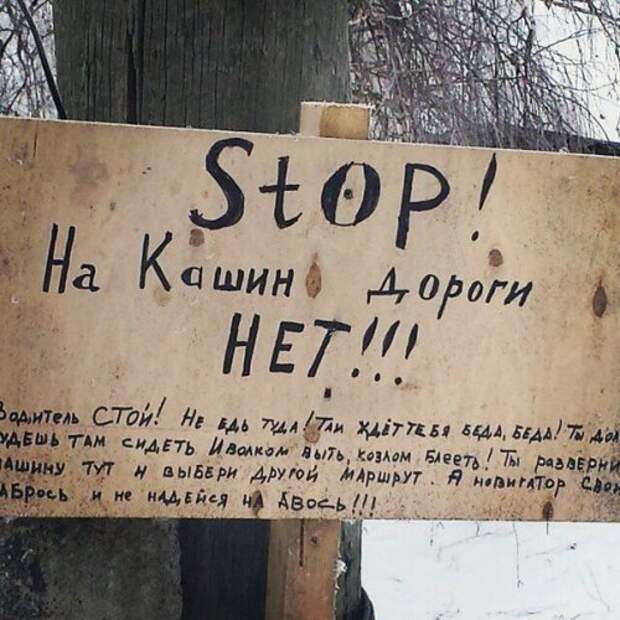 Stop!
На Кашин дороги
НЕТ!!!
Водитель СТОЙ! Не едь туда! Там ждёт тебя беда, беда! Ты дол
удешь там сидеть И волком выть, козлом блееть! Ты разверни
ашину тут и выбери другой маршрут. А новигатор свой
аБрось и не надейся на Авось!!!